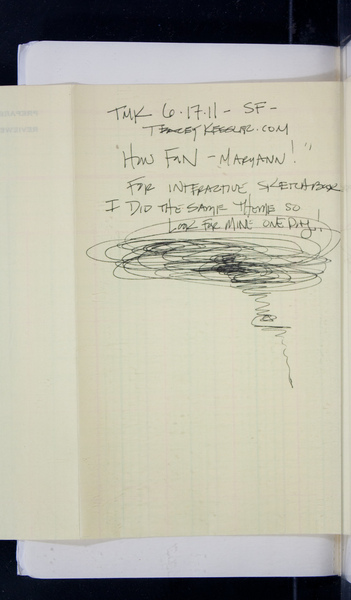 TMK 6.17.11 - SF -
KESSLER.COM
"HOW FUN - MARYANN!"
FOR INTERACTIVE SKETCHBOOK
I DID THE SAME THEME SO
LOOK FOR MINE ONE DAY!!